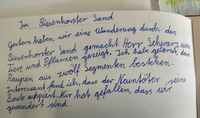 Im Biesenhorster Sand
Gestern haben wir eine Wanderung durch den
Biesenhorster Sand gemacht. Herr Schwarz
Tiere und Pflanzen gezeigt. Ich habe gelernt, dass
Raupen aus zwölf Segmenten bestehen.
Interessant fand ich, dass der Neuntöter seine
Beute aufspießt. Mir hat gefallen, dass wir
gewandert sind.